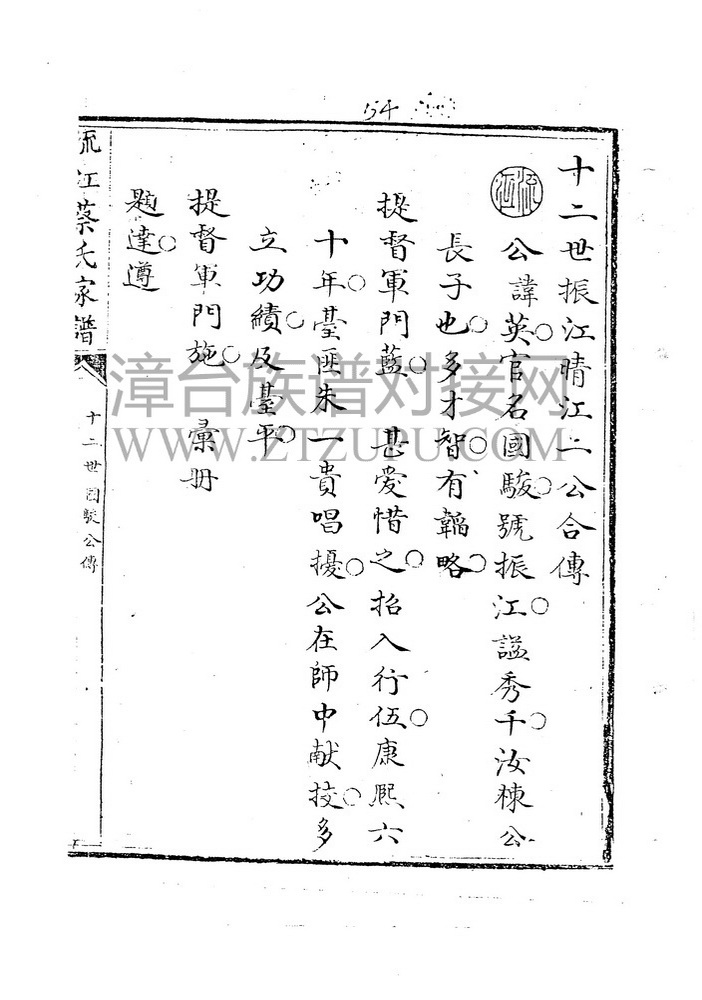 54
十二世振江晴江二公合傳
流江
公諱英○官名國駿○號振江○謚秀千○汝棟公
長子也○多才智○有韜略○
提督軍門藍○ 甚愛惜之○招入行伍○康熙六
十年○臺匪朱一貴唱擾○公在師中献技○多
立功績○及臺平○
提督軍門施○ 彙册
題達○遵
流江蔡氏家譜
十二世國駿公傳
漳台族谱对接网
WWW.ZTZUPU.COM